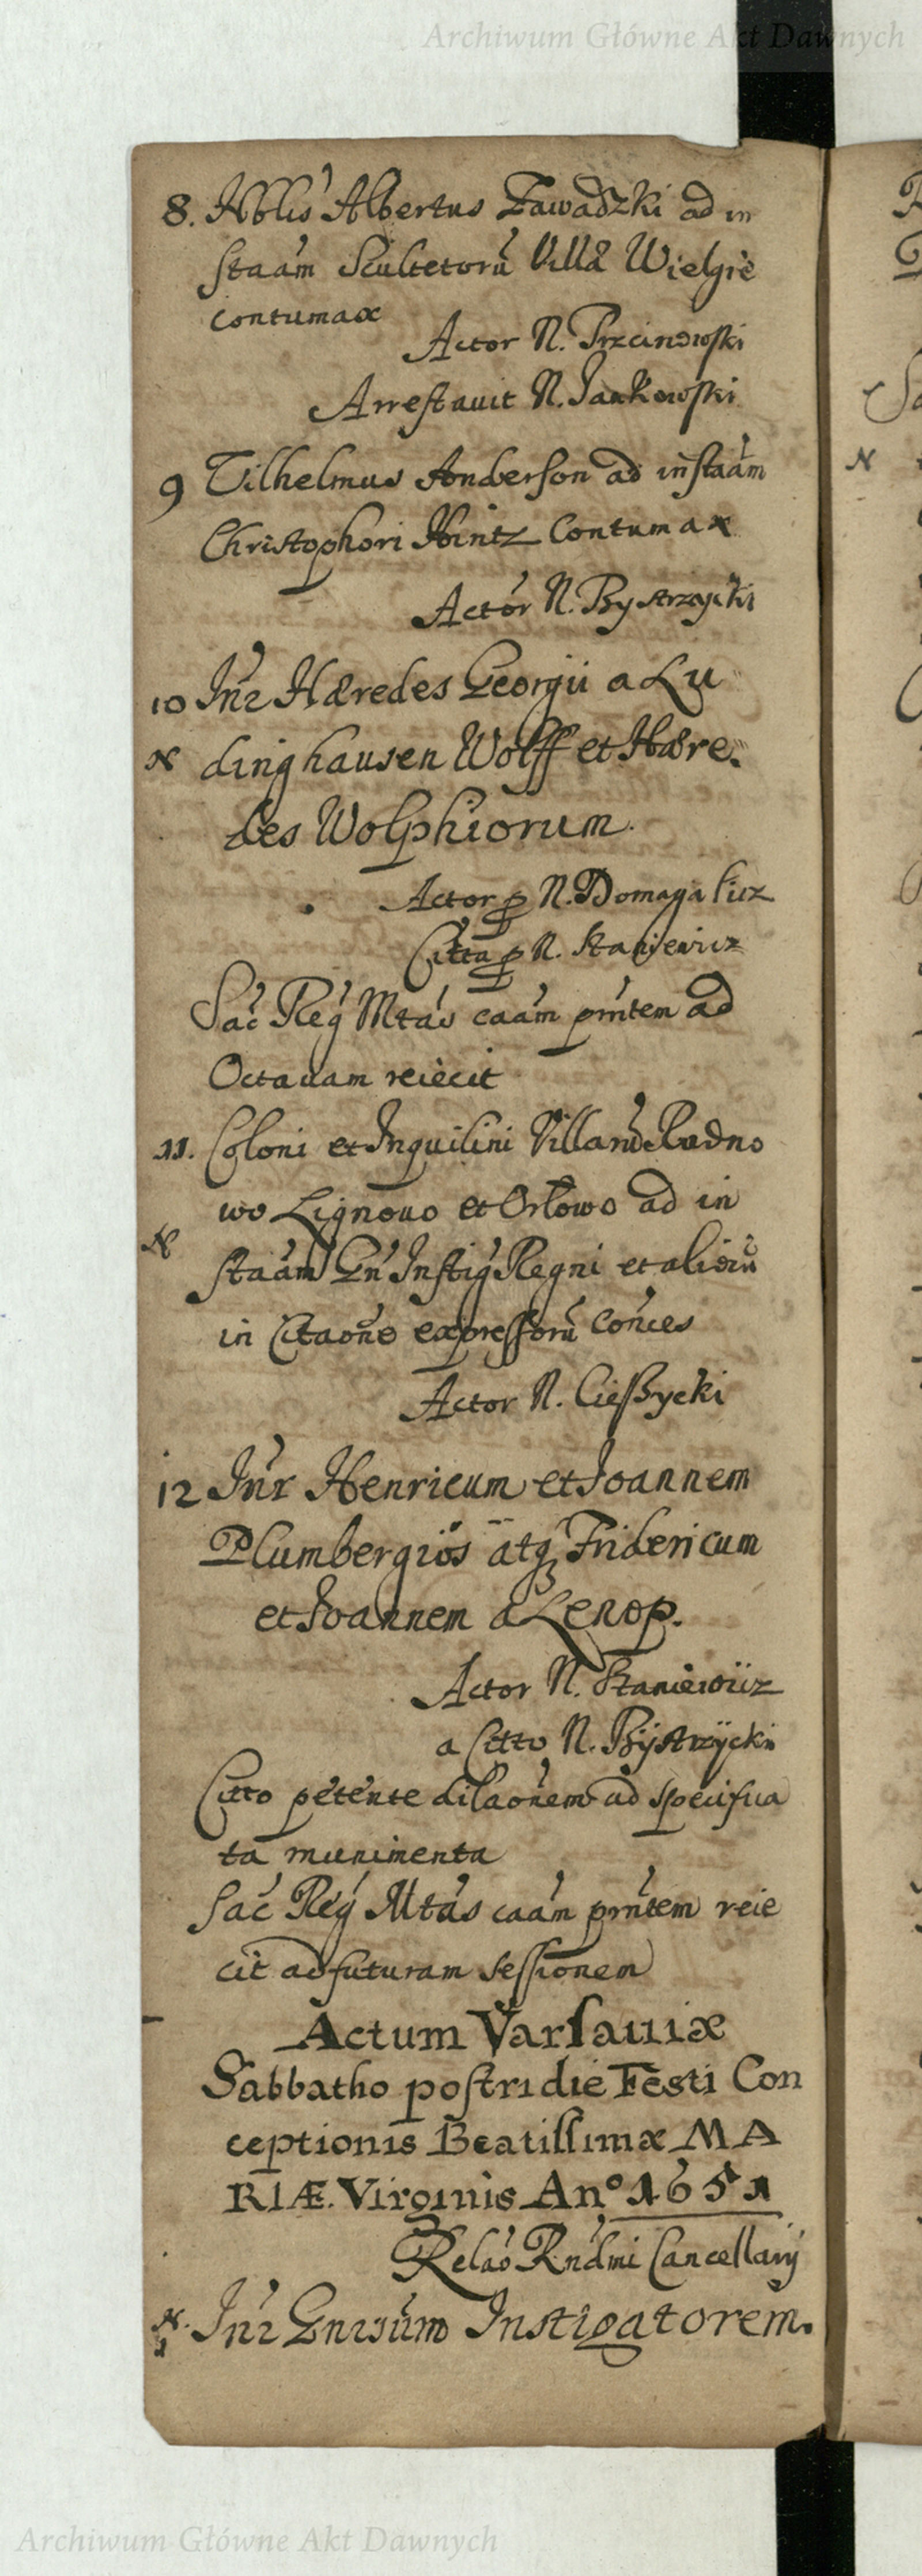 Archiwum Główne Akt Dawnych
8. Nblis Albertus Zawadzki ad in
staām Scultetorū Villæ Wielgie
contumax
Actor N. Przcinowski
Arrestauit N. Jankowski
9 Vilhelmus Anderson ad instaām
Christophori Hintz Contumax
Actor N. Bystrzycki
10 Inr Hæredes Georgii a Lu
N dinghausen Wolff et Hære.
des Wolphiorum.
Actor p N. Domagalicz
Citta p N. Staniewicz
Sac Reg Mtas caam pntem ad
Octauam reiecit
11. Coloni et Inquilini Villarū Radno
wo Lignowo et Orłowo ad in
N
staām Gn Instig Regni et aliorū
in Citaone expressorū Conces
Actor N. Cieszycki
12 Inr Henricum et Joannem
Plumbergios atq Fridericum
et Joannem a Lenop.
Actor N. Staniewicz
a Citto N. Bÿstrzÿcki
Citto petente dilaonem ad specifica
ta munimenta
Sac Reg Mtas caam pntem reie
cit ad futuram sessionem
Actum Varsauiæ
Sabbatho postridie Festi Con
ceptionis Beatissimæ MA
RIÆ. Virginis An° 1651
Relao Rndmi Cancellarÿ
N. 1 Inr Gnrsum Instigatorem.
Archiwum Główne Akt Dawnych